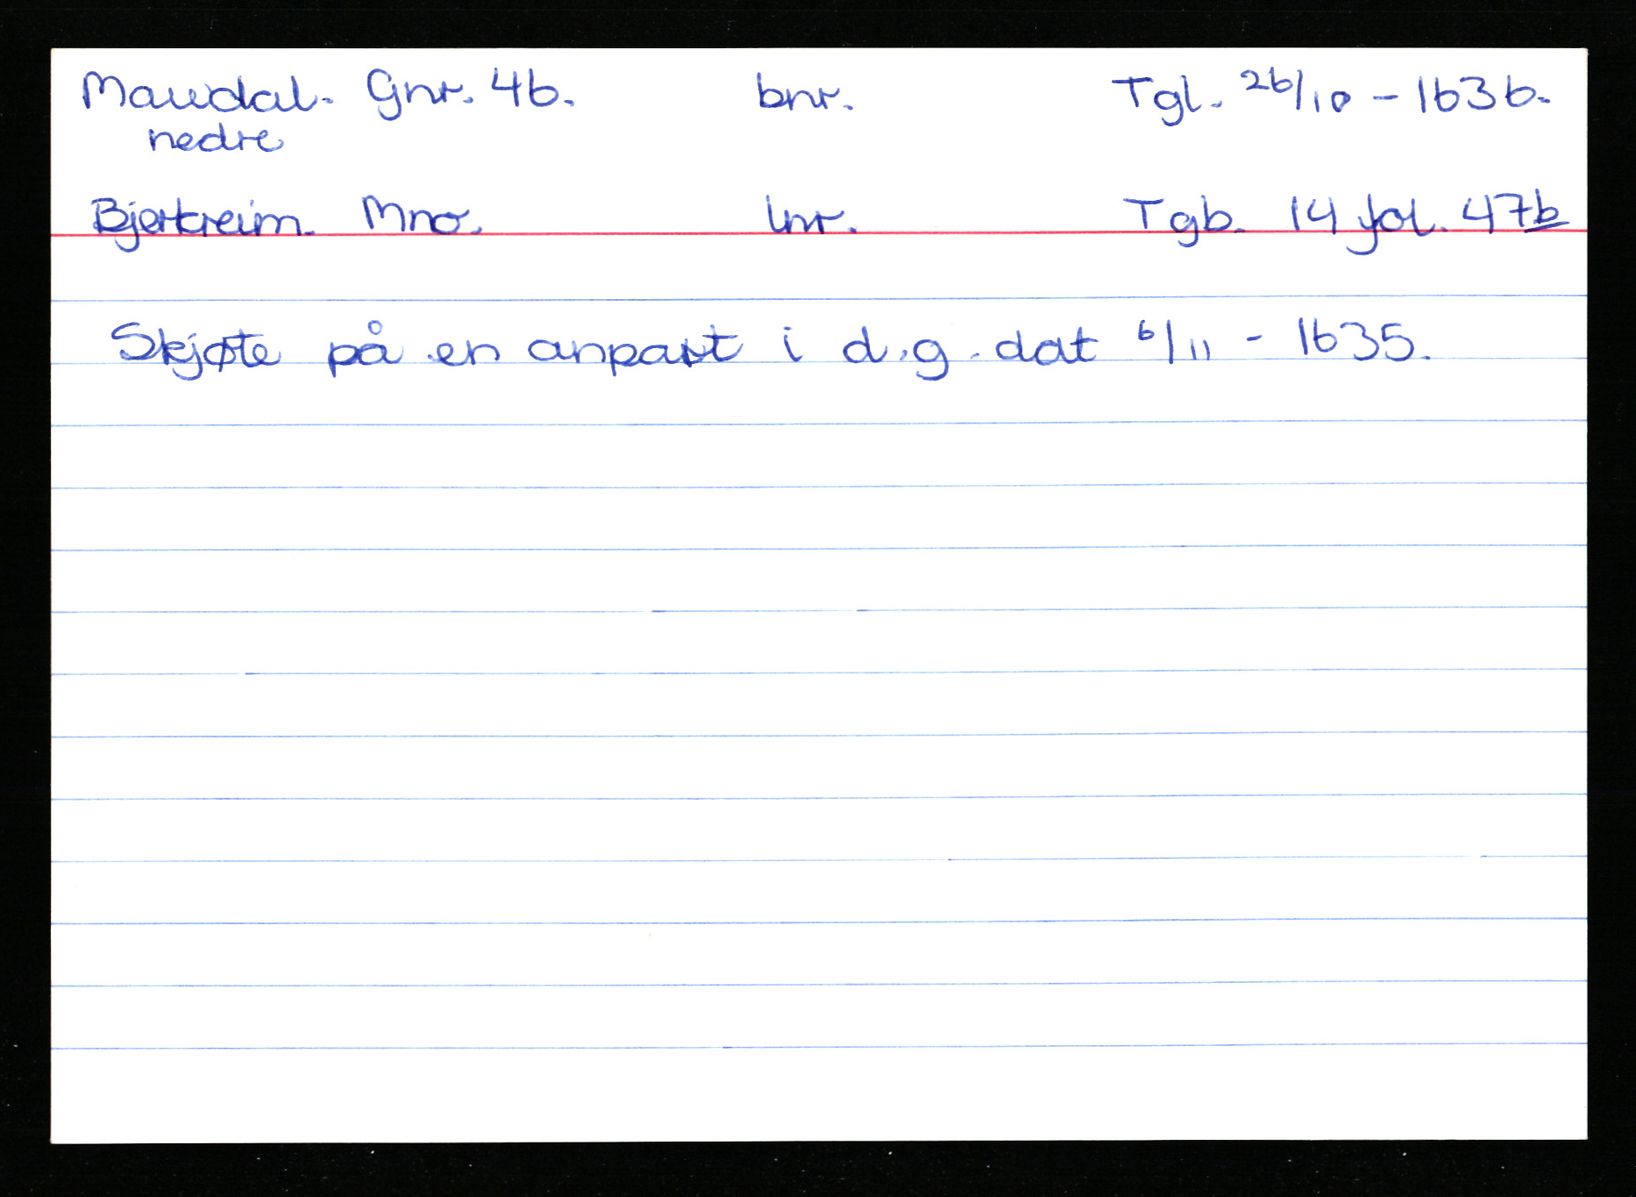 Maudal. Gnr. 46. bnr. Tgl. 26/10 - 1636.
nedre
Bjerkreim. Mno. lnr. Tgb. 14 fol. 47b
Skjøte på en anpart i d.g. dat 6/11 - 1635.